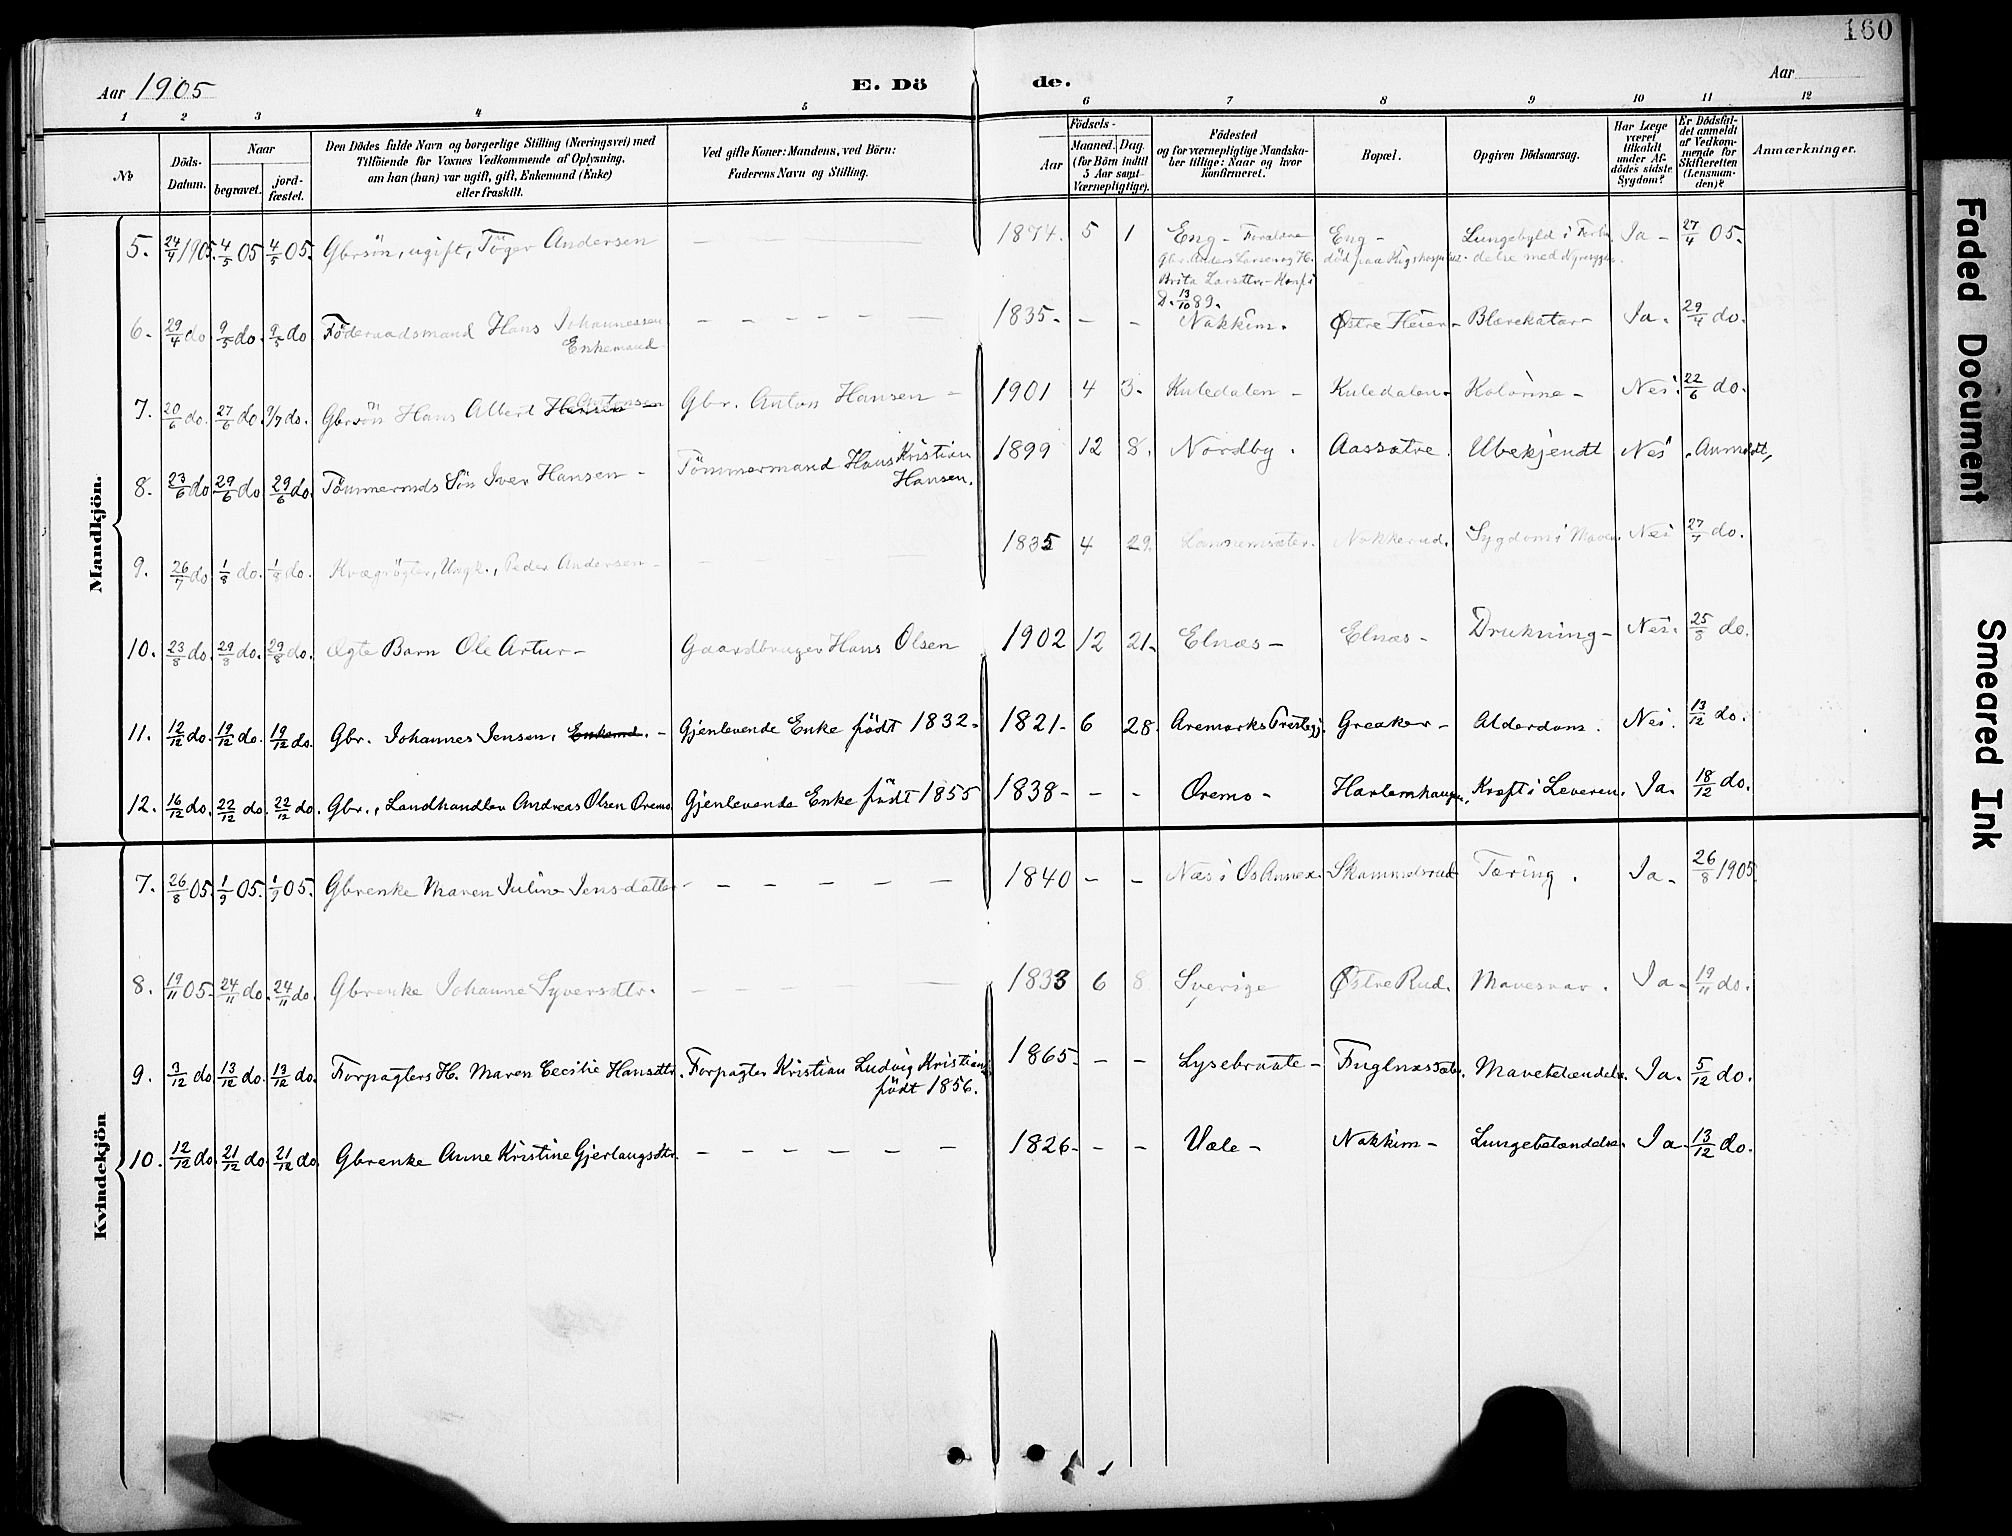 160
Aar 1905 E. Dö de. Aar
1 2 3 4 5 6 7 8 9 10 11 12
No
Döds-Datum.
Naar
begravet.
jord-fæstet.
Den Dödes fulde Navn og borgerlige Stilling (Næringsvei) med
Tilföiende for Voxnes Vedkommende af Oplysning,
om han (hun) var ugift, gift, Enkemand (Enke)
eller fraskilt.
Ved gifte Koner: Mandens, ved Börn:
Faderens Navn og Stilling.
Födsels-
Aar
Maaned. Dag.
(for Börn indtil
5 Aar samt
Værnepligtige).
Födested
og for værnepligtige Mandska-
ber tillige: Naar og hvor
konfirmeret.
Bopæl.
Opgiven Dödsaarsag.
Har Læge
været
tilkaldt
under Af-
dödes sidste
Sygdom?
Er Dödsfal-
det anmeldt
af Vedkom-
mende for
Skifteretten
(Lensman-
den)?
Anmærkninger.
Mandkjön.
5. 24/4 1905. 4/5 05 4/5 05. Gbrsön, ugift, Töger Andersen — 1874. 5 1 Eng - Forældre Eng - Lungebyld i Ja - 27/4 05.
Gbr. Anders Larsen og H. död paa Rigshospitalet. delse med
Brita Larsdtter - Konf. i
D. 13/10 89.
6. 29/4 do 9/5 do. 9/5 do Föderaadsmand Hans Johannessen — — — — — 1835. - - Nakkim. Østre Heier - Blærekatar - Ja. 29/4 do.
Enkemand
7. 20/6 do. 27/6 do. 9/7 do. Gbrsön Hans Albert Hansen Antonsen Gbr. Anton Hansen - 1901 4 3. Kuledalen - Kuledalen - Kolerine - Nei. 22/6 do.
8. 23/6 do 29/6 do 29/6 do. Tömmermds Sön Iver Hansen - Tömmermand Hans Kristian 1899 12 8. Nordby. Aassætre. Ubekjendt Nei Anmeldt,
Hansen.
9. 26/7 do 1/8 do. 1/8 do. Kvægrögter, Ungk., Peder Andersen - 1835 4 29. Nakkerud. Sygdom i Maven. Nei 27/7 do.
10. 23/8 do. 29/8 do. 29/8 do. Ægte Barn Ole Artur - Gaardbruger Hans Olsen 1902 12 21. Elnæs - Elnæs - Drukning - Nei. 25/8 do.
11. 12/12 do. 19/12 do. 19/12 do. Gbr. Johannes Jensen. Enkemd. - Gjenlevende Enke födt 1832. 1821. 6 28. Aremarks Præstegj. Greaker - Alderdom. Nei. 13/12 do.
12. 16/12 do. 22/12 do. 22/12 do. Gbr., Landhandler Andreas Olsen Oremo Gjenlevende Enke födt 1855 1838 - - - Oremo - Harlemhaugen. Kræft i Leveren. Ja. 18/12 do.
Kvindekjön
7. 26/8 05. 1/9 05. 1/9 05. Gbrenke Maren Juline Jensdatter — — — — — 1840 - - Næs i Os Annex. Skammelsrud Tæring. Ja. 26/8 1905.
8. 19/11 05. 24/11 do. 24/11 do. Gbrenke Johanne Syversdtr. — — — — — 1833 6 8. Sverige Østre Rud. Mavesaar. Ja - 19/11 do.
9. 3/12 do 13/12 do. 13/12 do. Forpagters H. Maren Cecilie Hansdtr. Forpagter Kristian Ludvig Kristians. 1865. - - Lysebraate - Fuglnessæter. Mavebetændelse. Ja. 5/12 do.
födt 1856.
10. 12/12 do. 21/12 do. 21/12 do. Gbrenke Anne Kristine Gjerlaugsdtr. — — — — — 1826. - - Vale - Nakkim - Lungebetændelse. Ja. 13/12 do.
Faded Document
Smeared Ink